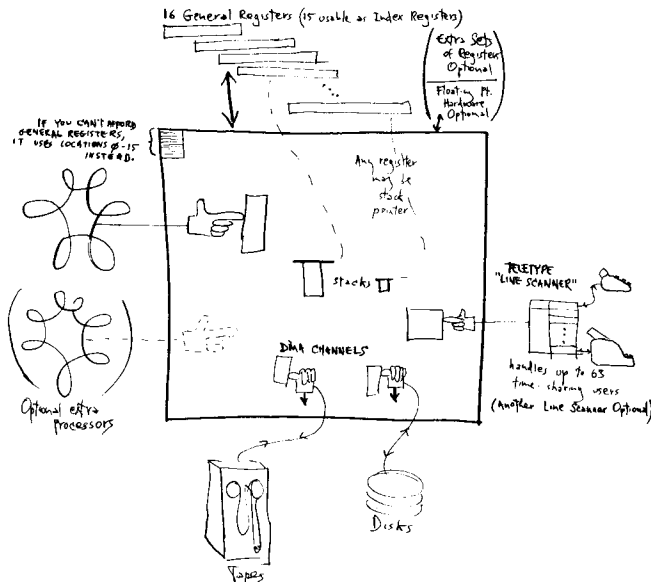 16 General Registers (15 usable as Index Registers)
(Extra Sets
of Register
Optional
Floating Pt.
Hardware
Optional)
IF YOU CAN'T AFFORD
GENERAL REGISTERS,
IT USES LOCATIONS Ø-15
INSTEAD.
Any register
may be
stack
pointer
stacks
TELETYPE
"LINE SCANNER"
DMA CHANNELS
handles up to 63
time-sharing users
(Another Line Scanner Optional)
Optional extra
processors
Tapes
Disks